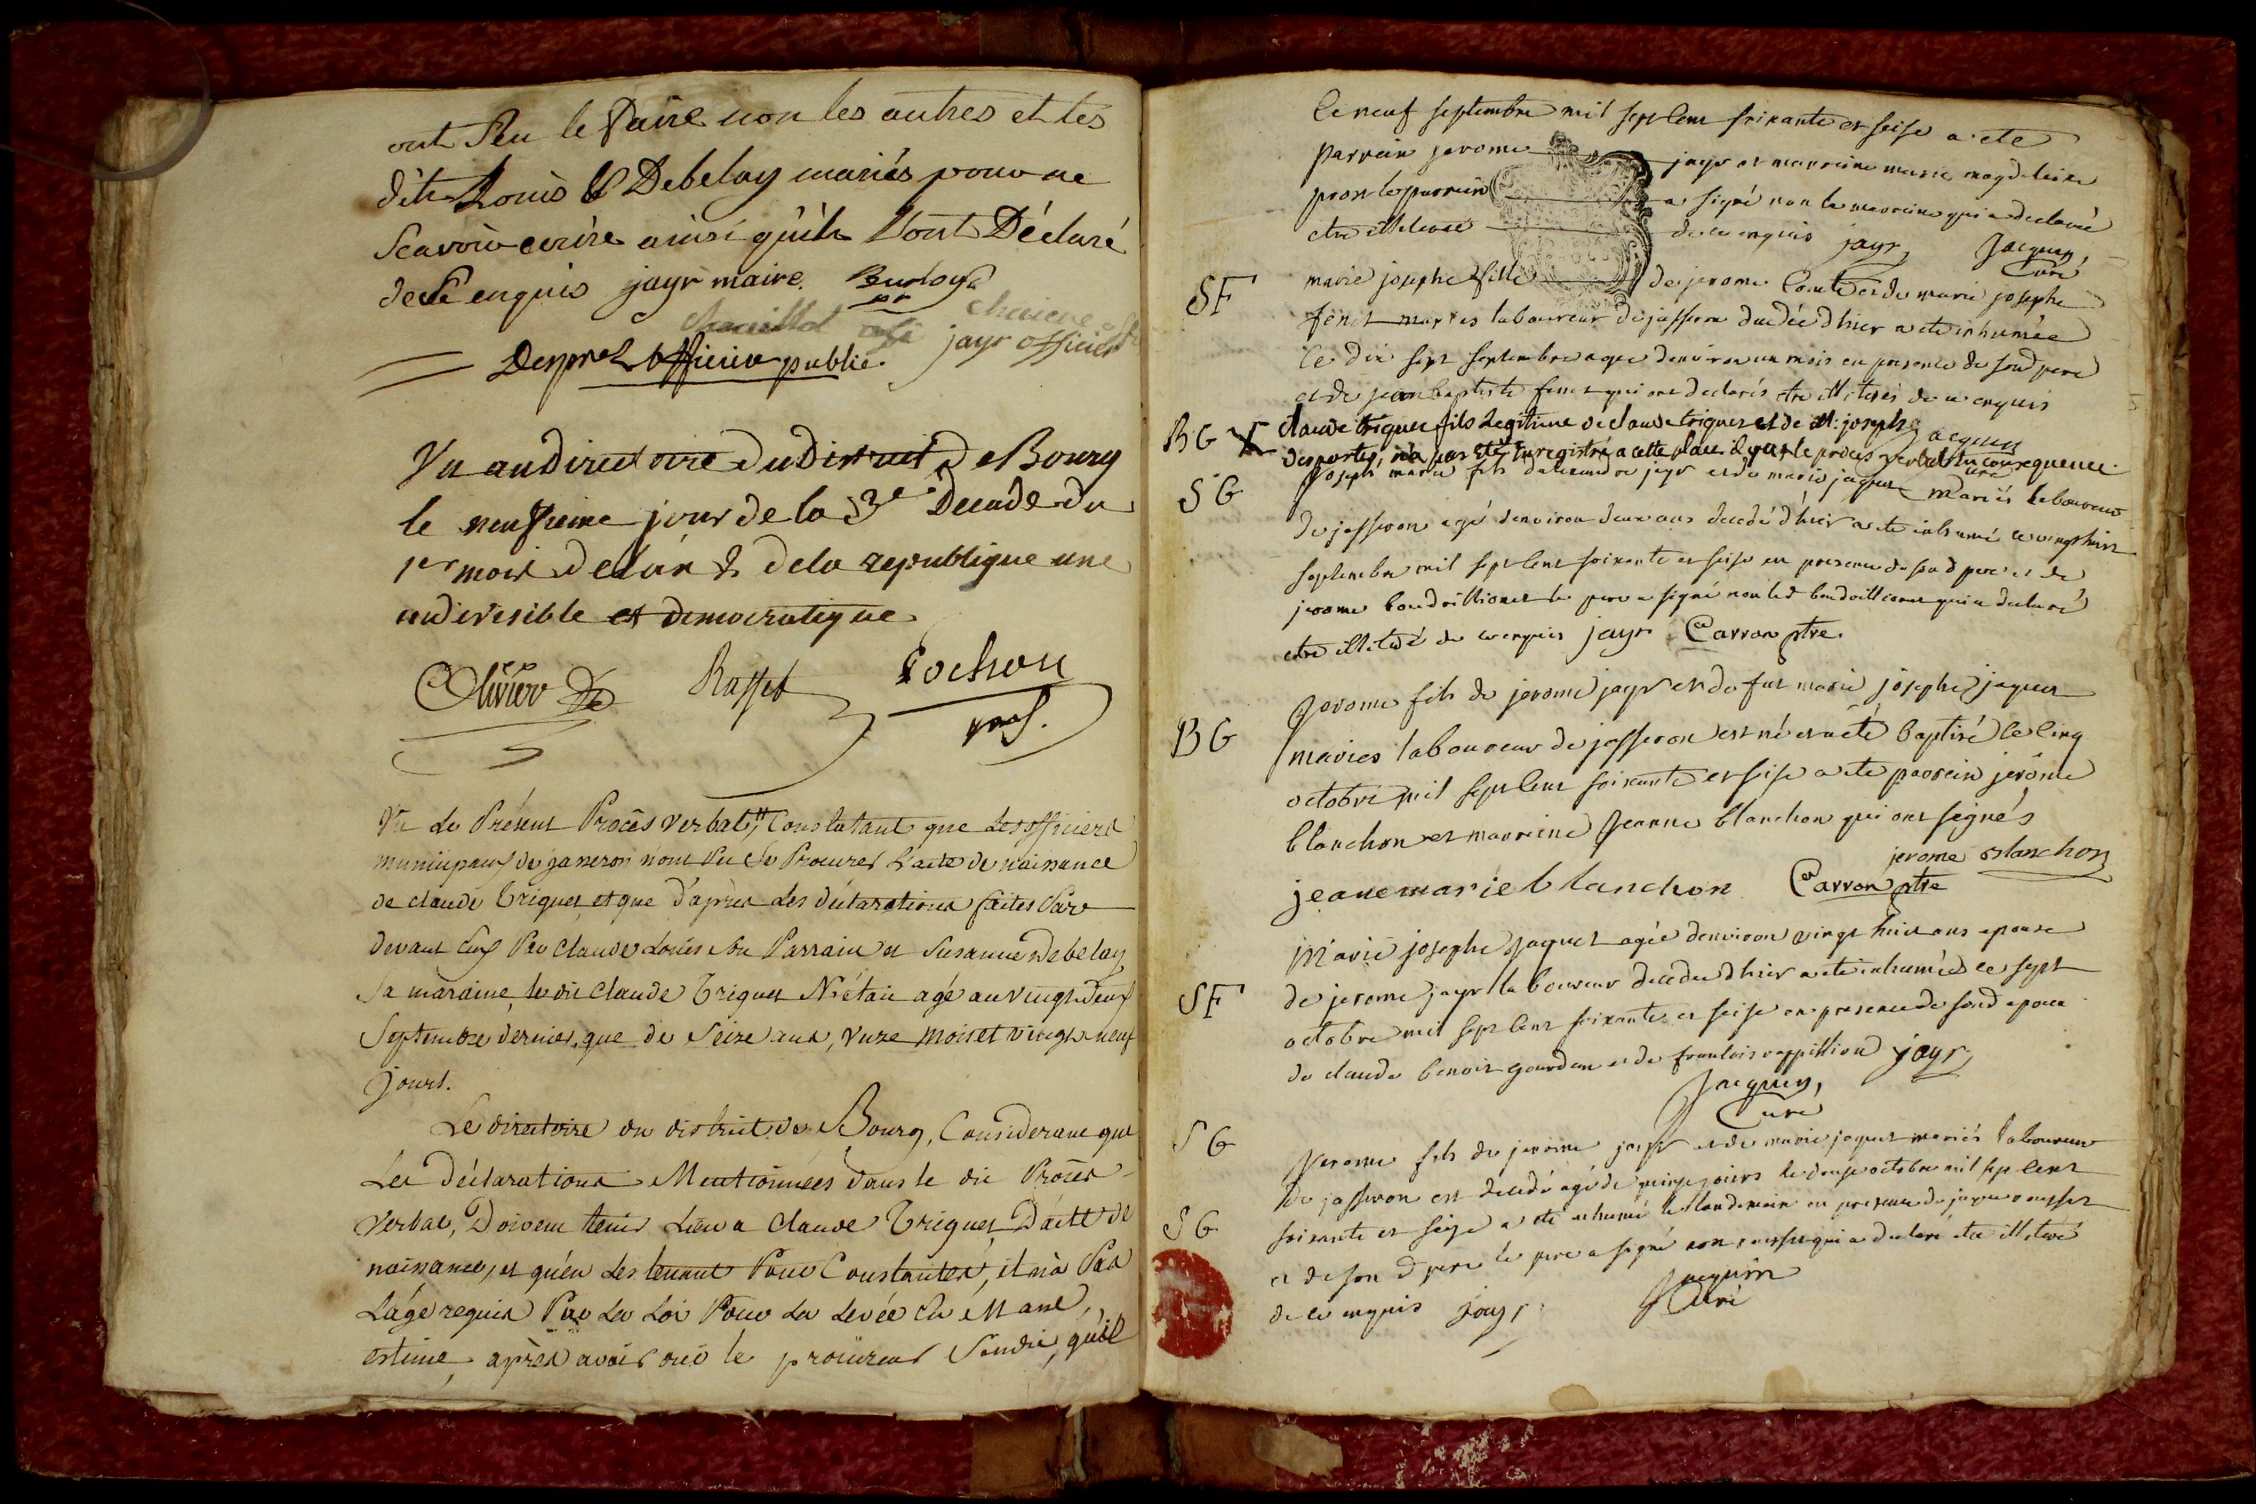 ont Peu le Faire non les autres et les
dits Louis & Debelay mariés pour ne
Scavoir ecrire ainsi qu'ils l'ont Déclaré
de ce enquis jayr maire.
jayr officier
officier public.
Vu au directoire du District de Bourg
le neuvieme jour de la 3e Decade du
1er mois de l'an 2 de la republique une
indivisible et democratique
Olivier Rasset Cochon
Vu Le Présent Procès verbal, Constatant que Les officiers
municipaux de jasseron n'ont Pu se Procurer L'acte de naissance
de claude Triquet, et que d'après Les déclarations faites Par
devant Eux Par Claude Louis Son Parrain et Susanne Debelay
Sa maraine, le dit Claude Triquet N'étoit agé au vingt deux
Septembre dernier, que de Seize ans, onze mois et vingt neuf
jours.
Le directoire du district de Bourg, Considerant que
Les déclarations Mentionnées dans le dit Procès
verbal, Doivent tenir Lieu a Claude Triquet D'acte de
naissance, et qu'en Les tenant Pour Constantes, il n'a Pas
L'age requis Par La Loi Pour La Levée En Masse,
estime, après avoir oui le procureur Sindic, qu'il
Ce neuf septembre mil sept cent soixante et seise a ete
parrain jerome jayr et marraine marie magdeleine
le parrain a signé non la marraine qui a declaré
etre illiterée de ce enquis jayr Jacquet,
Curé
SF marie josephe fille de jerome Comte et de marie josephe
fenet mariés laboureur de jasseron decedée d'hier a ete inhumée
le dix sept septembre agee d'environ un mois en presence de sond pere
et de jean baptiste fenet qui ont declarés etre illiterés de ce enquis
Jacquet
curé
BG X claude triquet fils Legitime de claude triquet et de M: josephe
desportes, n'a pas été enregistré a cette place il y a le procès verbal en consequence.
SG joseph marie fils d'alexandre jayr et de marie jaquet mariés laboureur
de jasseron agé d'environ deux ans decedé d'hier a ete inhumé ce vingt huit
septembre mil sept cent soixante et seise en presence de son d pere et de
jerome boudrillionet le pere a signé non led boudrillionet qui a declaré
etre illiteré de ce enquis jayr Carron ptre
BG Jerome fils de jerome jayr et de fut marie josephe jaquet
mariés laboureur de jasseron est né et a été baptisé le cinq
octobre mil sept cent soixante et seise a ete parrein jerôme
blanchon et marreine Jeanne blanchon qui ont signés
jerome blanchon
jeane marie blanchon Carron ptre
SF Marie josephe jaquet agée d'environ vingt huit ans epouse
de jerome jayr laboureur decedée d'hier a ete inhumée ce sept
octobre mil sept cent soixante et seise en presence de sond epoux
de claude benoit gourdan et de francois rappillion jayr
Jacquet,
Curé
SG Jerome fils de jerome jayr et de marie jaquet mariés laboureur
de jasseron est decedé agé de quinze jours le douse octobre mil sept cent
SG soixante et seise a eté inhumé le landemain en presence de jerome rousset
et de son d pere le pere a signé non rousset qui a declaré etre illiteré
de ce enquis jayr Jacquet
Curé